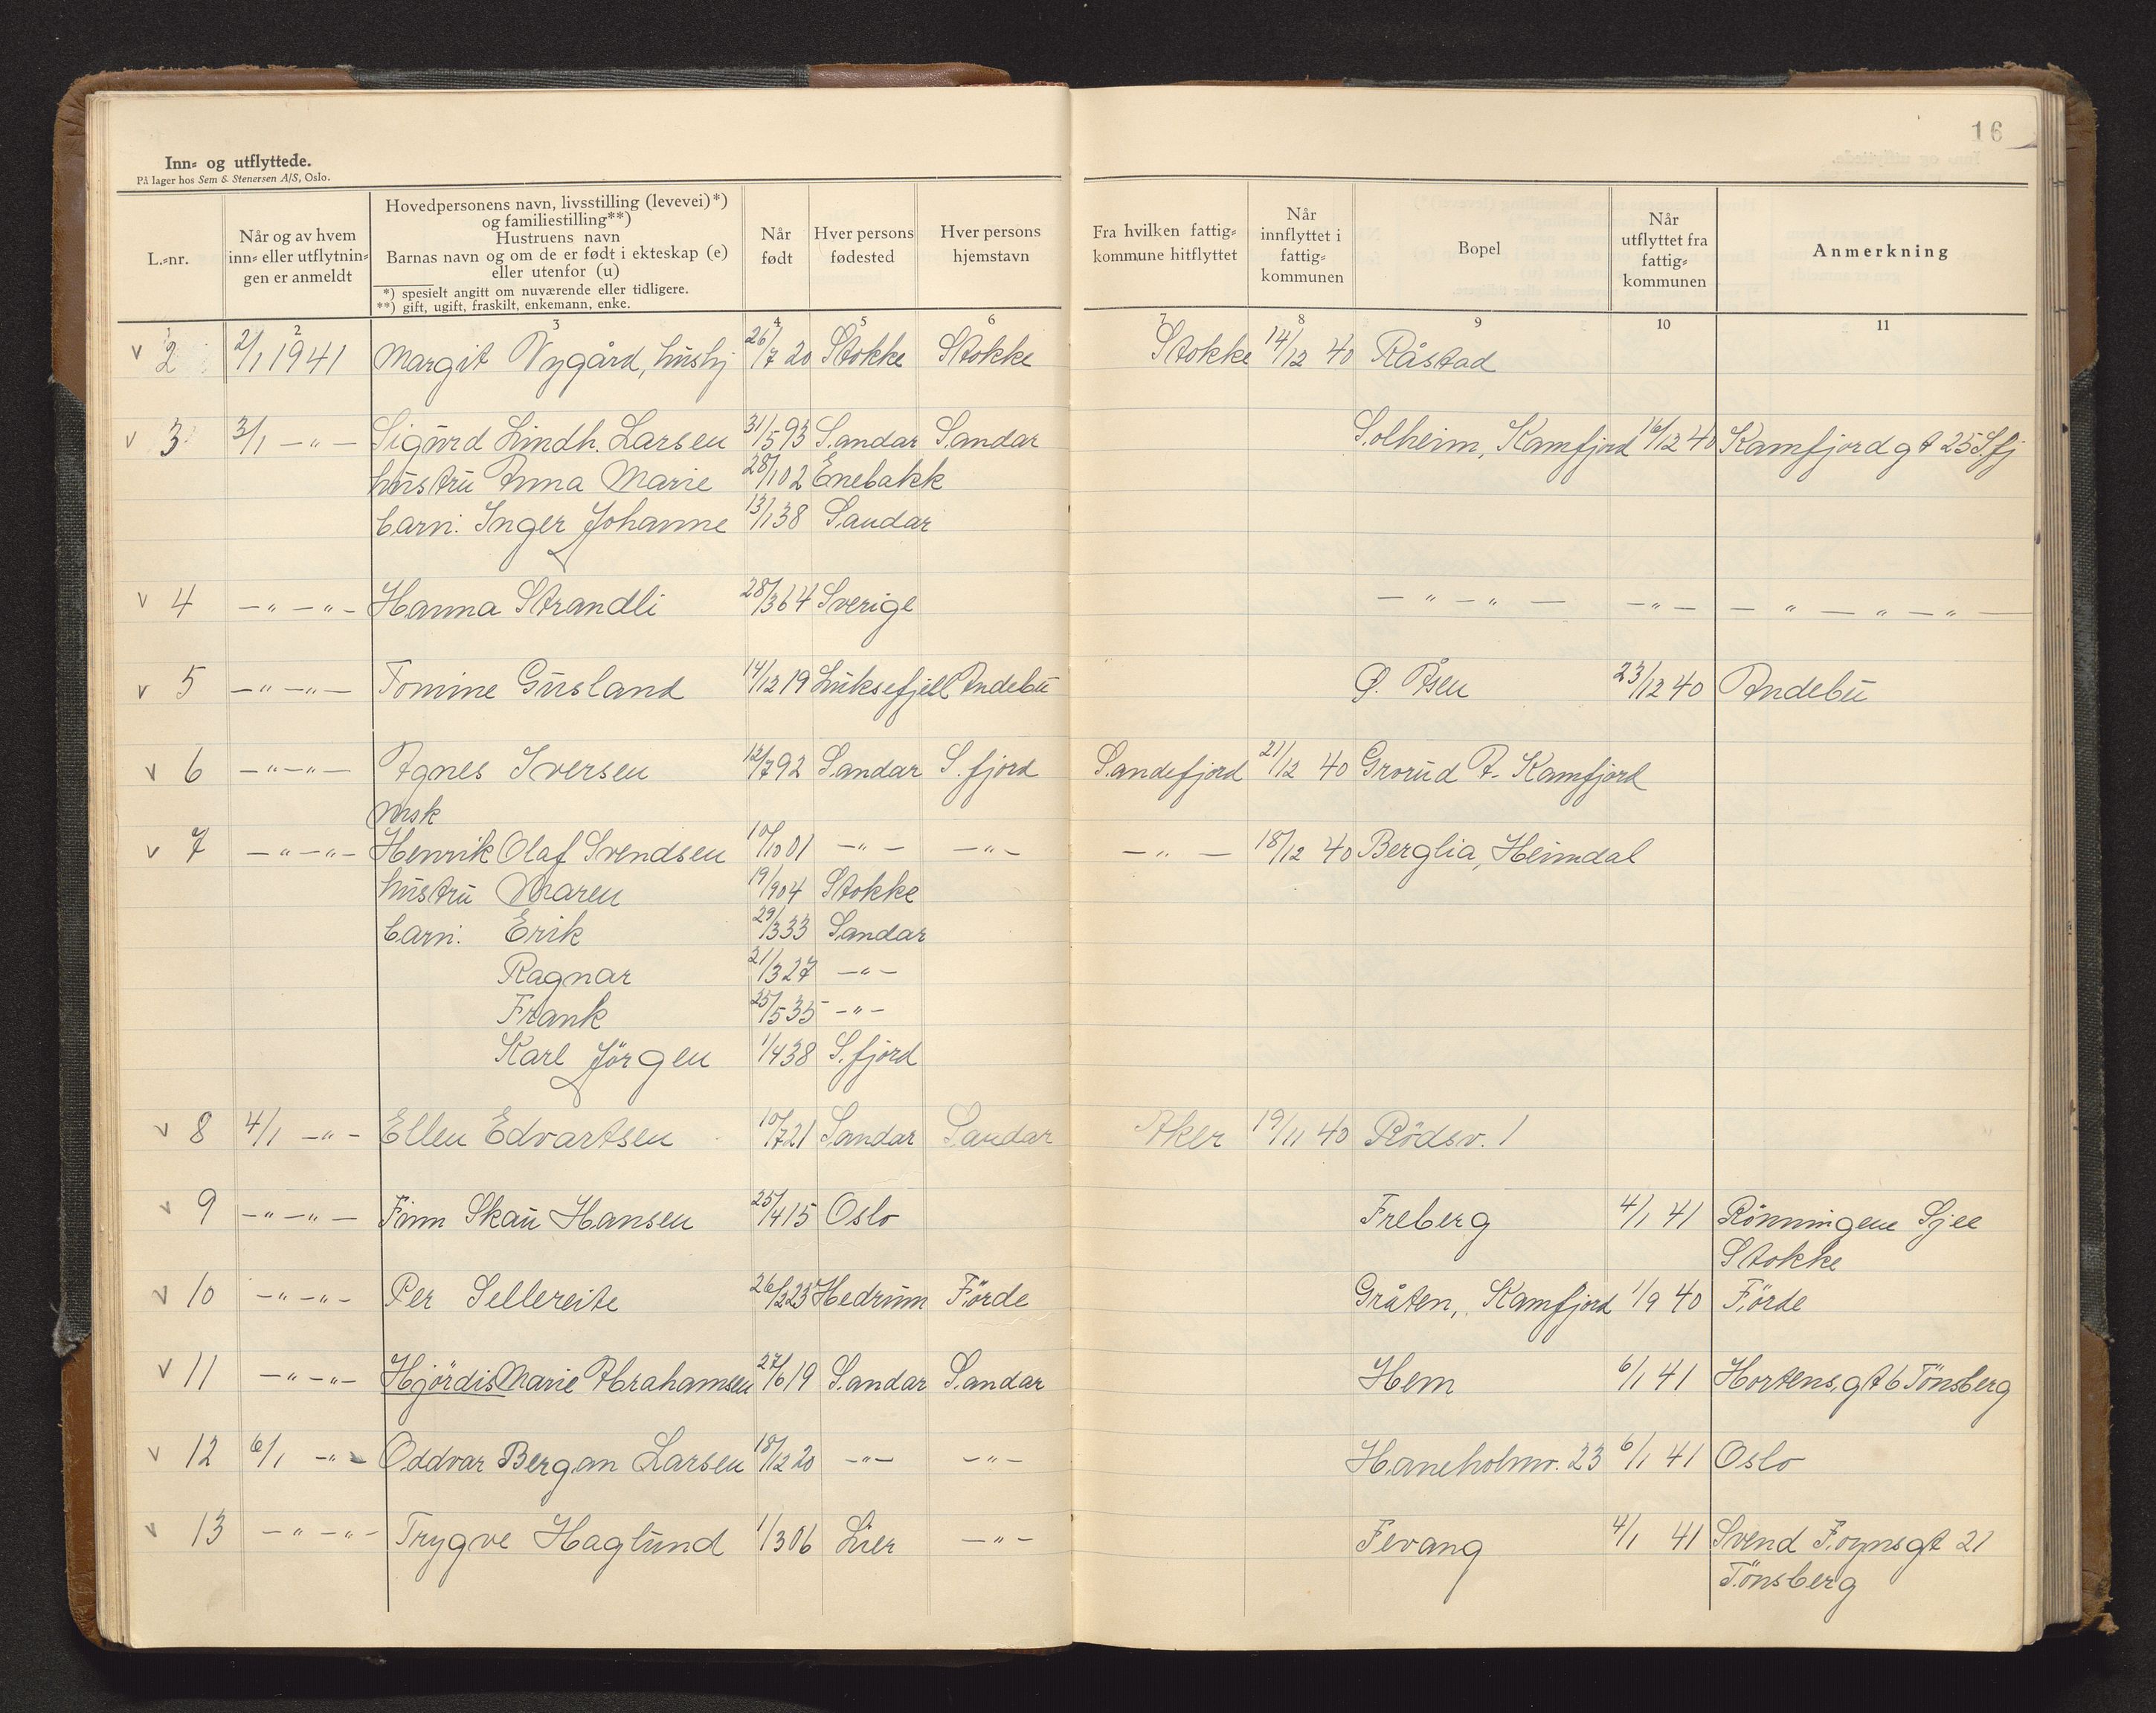 16
Inn- og utflyttede.
På lager hos Sem & Stenersen A/S, Oslo.
L.-nr.
Når og av hvem inn- eller utflytningen er anmeldt
Hovedpersonens navn, livsstilling (levevei)*)
og familiestilling**)
Hustruens navn
Barnas navn og om de er født i ekteskap (e)
eller utenfor (u)
*) spesielt angitt om nuværende eller tidligere.
**) gift, ugift, fraskilt, enkemann, enke.
Når født
Hver persons fødested
Hver persons hjemstavn
Fra hvilken fattig-kommune hitflyttet
Når innflyttet i fattig-kommunen
Bopel
Når utflyttet fra fattig-kommunen
Anmerkning
1 2 3 4 5 6 7 8 9 10 11
v 2 2/1 1941 Margit Nygård, hushj 26/7 20 Stokke Stokke Stokke 14/12 40 Råstad
v 3 3/1 -"- Sigurd Lindh. Larsen 31/5 93 Sandar Sandar Solheim, Kamfjord 16/12 40 Kamfjordgt 25 Sfj
hustru Anna Marie 28/1 02 Enebakk
barn: Inger Johanne 13/1 38 Sandar
v 4 -"-"- Hanna Strandli 28/3 64 Sverige -"-"- -"- -"-"-"-
v 5 -"-"- Tomine Gusland 14/12 19 Luksefjell Andebu Ø. Åsen 23/12 40 Andebu
v 6 -"-"- Agnes Iversen 12/7 92 Sandar S.fjord Sandefjord 21/12 40 Grorud P. Kamfjord
msk
v 7 -"-"- Henrik Olaf Svendsen 10/10 01 -"- -"- -"- 18/12 40 Berglia, Heimdal
hustru Maren 19/9 04 Stokke
barn: Erik 29/3 33 Sandar
Ragnar 21/3 27 -"-
Frank 25/5 35 -"-
Karl Jörgen 1/4 38 S.fjord
v 8 4/1 -"- Ellen Edvartsen 10/7 21 Sandar Sandar Aker 19/11 40 Rödsv. 1
v 9 -"-"- Finn Skau Hansen 25/4 15 Oslo Freberg 4/1 41 Rönningene Sjee
Stokke
v 10 -"-"- Per Sellereite 26/2 23 Hedrum Förde Gråten, Kamfjord 1/9 40 Förde
v 11 -"-"- Hjördis Marie Abrahamsen 27/6 19 Sandar Sandar Hem 6/1 41 Hortens,gt 6 Tönsberg
v 12 6/1 -"- Oddvar Bergan Larsen 18/12 20 -"- -"- Haneholmv. 23 6/1 41 Oslo
v 13 -"-"- Trygve Haglund 1/3 06 Lier -"- Fevang 4/1 41 Svend Foynsgt 21
Tönsberg